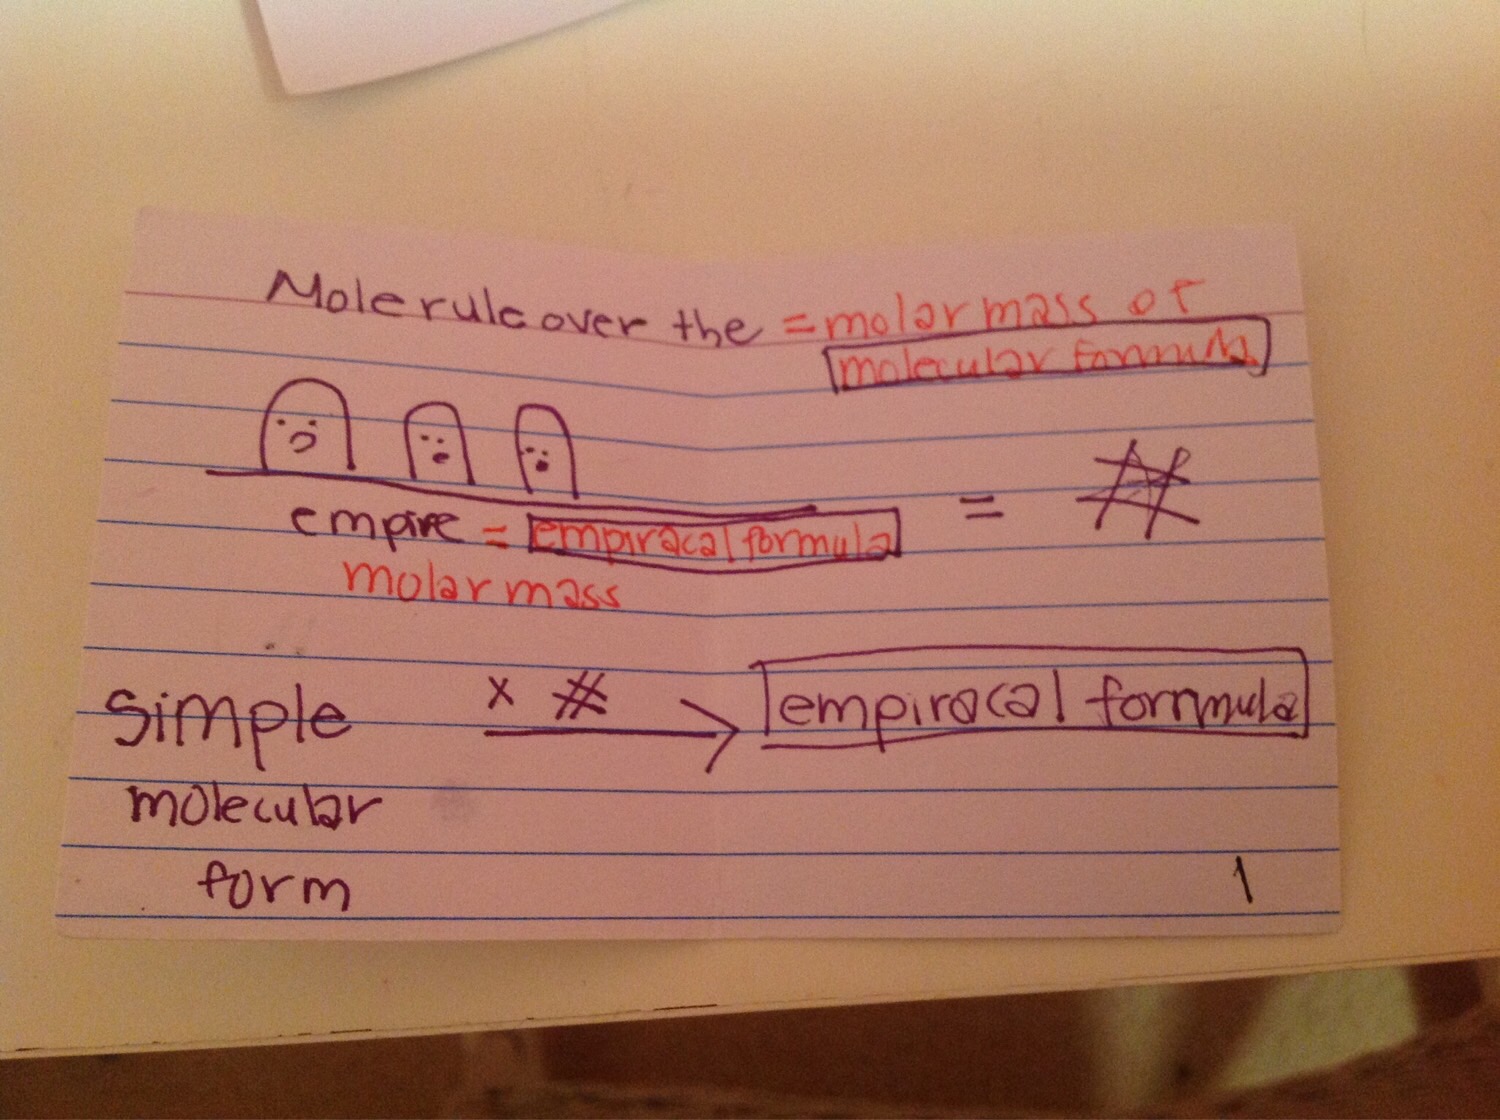 Mole rule over the = molar mass of
molecular formula
empire = empiracal formula
molar mass
= #
simple x # → empiracal formmula
molecular
form
1